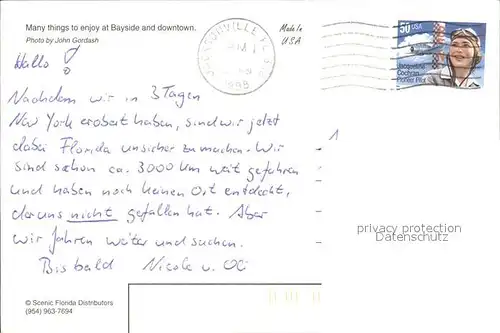 Many things to enjoy at Bayside and downtown.
Photo by John Gordash
Made in
USA
Hallo!
Nachdem wir in 3 Tagen
New York erobert haben, sind wir jetzt
dabei Florida unsicher zu machen. Wir
sind schon ca. 3000 km weit gefahren
und haben noch keinen Ort entdeckt,
der uns nicht gefallen hat. Aber
wir fahren weiter und suchen.
Bis bald Nicole u.
© Scenic Florida Distributors
(954) 963-7694
JACKSONVILLE FL
PM
1998
50 USA
Jacqueline
Cochran
Pioneer Pilot
privacy protection
Datenschutz